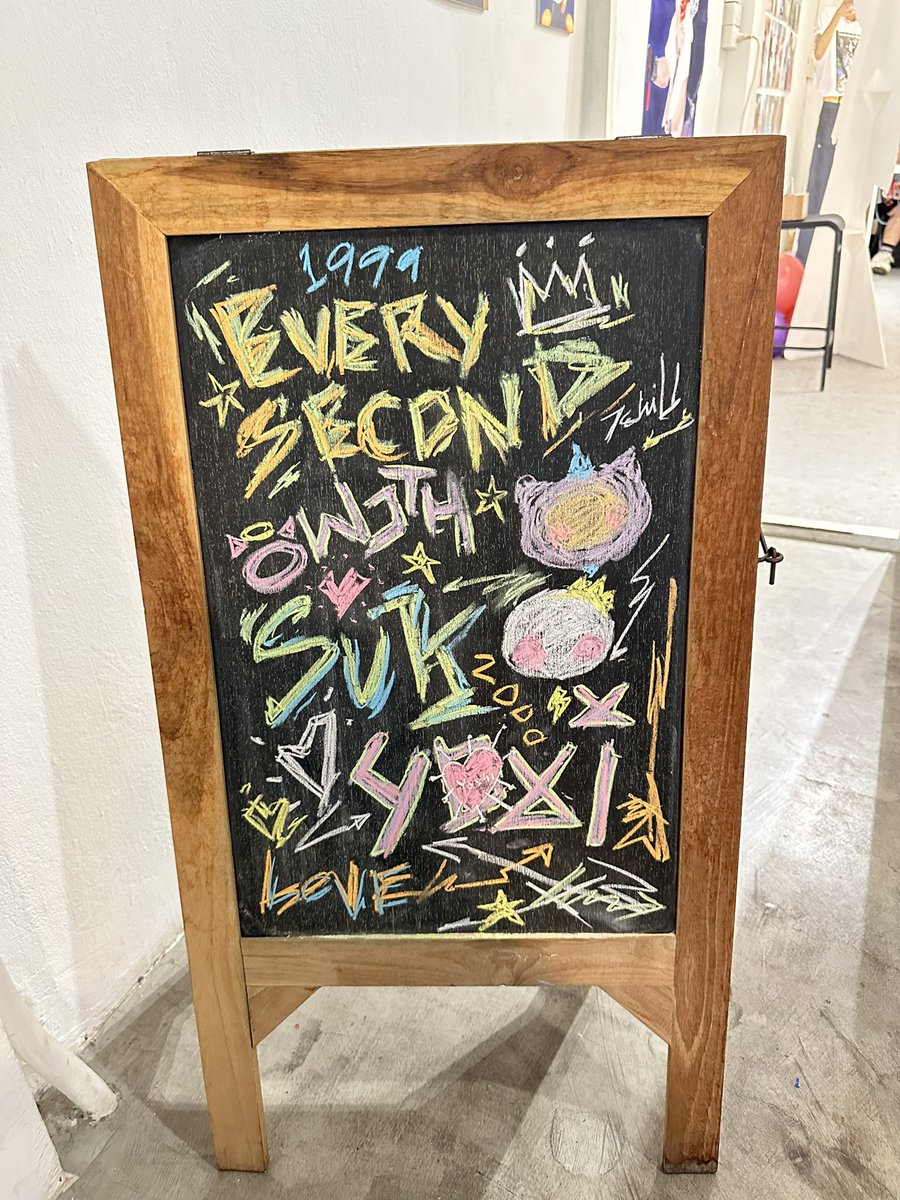 1999
EVERY
SECOND
WITH
SUK
X
YOXI
LOVE